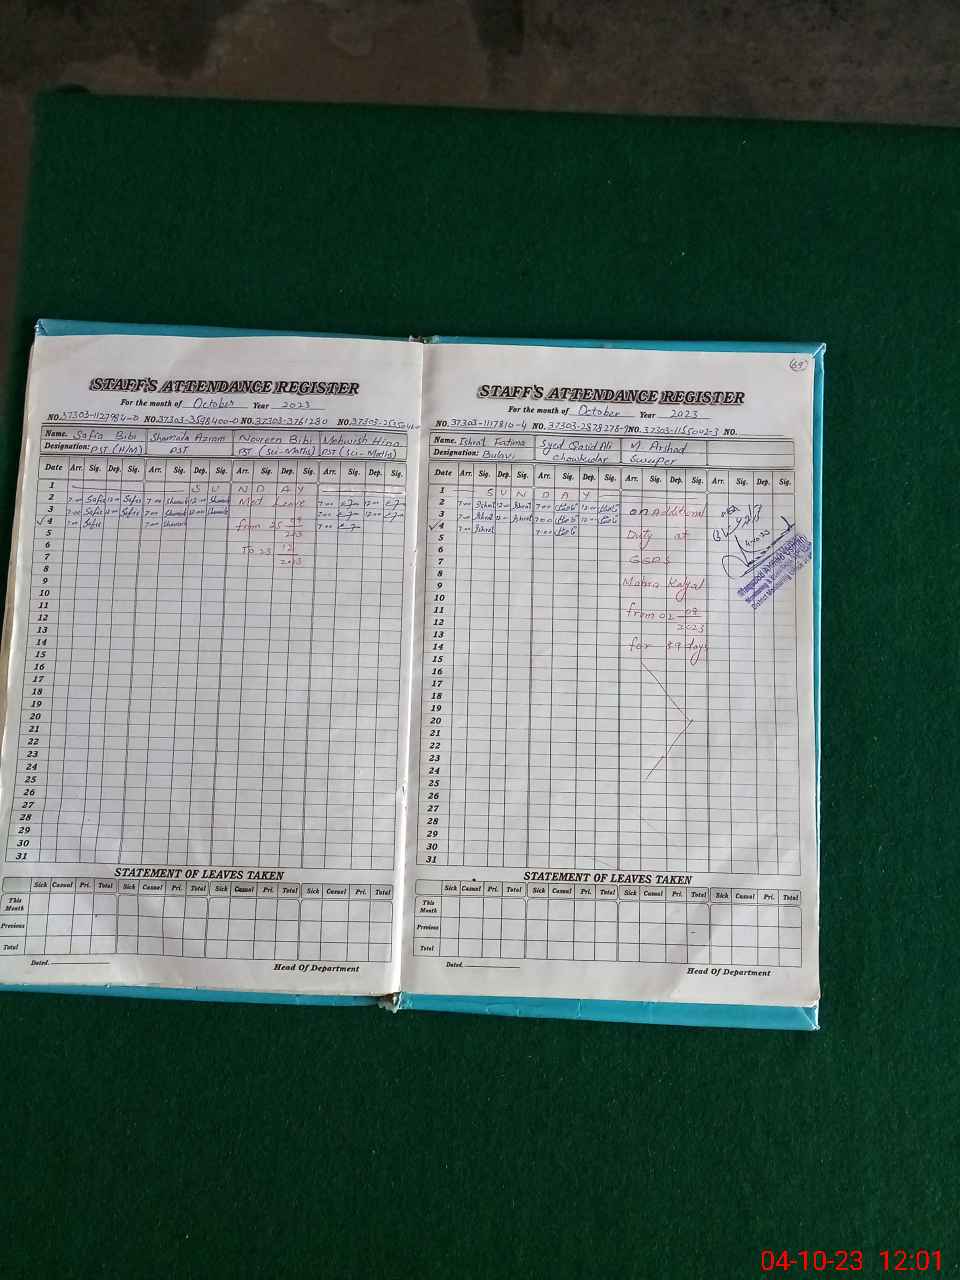 (69)
STAFF'S ATTENDANCE REGISTER
For the month of October Year 2023
NO. 37303-1127984-0 NO. 37303-3598400-0 NO. 37303-3761280 NO. 37303-
Name. Safia Bibi Shamala Azram Noureen Bibi Mehwish Hina
Designation: PST (H/M) PST PST (Sci-Maths) PST (Sci-Maths)
Date Arr. Sig. Dep. Sig. Arr. Sig. Dep. Sig. Arr. Sig. Dep. Sig. Arr. Sig. Dep. Sig.
1 S U N D A Y
2 7:00 Safia 12:00 Safia 7:00 Shamala 12:00 Shamala Met Leave 7:00 12:00
3 7:00 Safia 12:00 Safia 7:00 Shamala 12:00 Shamala 7:00 12:00
4 7:00 Safia 7:00 Shamala from 25 09 2023 7:00
5
6 To 23 12 2023
7
8
9
10
11
12
13
14
15
16
17
18
19
20
21
22
23
24
25
26
27
28
29
30
31
STATEMENT OF LEAVES TAKEN
Sick Casual Pri. Total Sick Casual Pri. Total Sick Casual Pri. Total Sick Casual Pri. Total
This Month
Previous
Total
Dated.
Head Of Department
STAFF'S ATTENDANCE REGISTER
For the month of October Year 2023
NO. 37303-1117810-4 NO. 37303-2878278-9 NO. 37303-1155002-3 NO.
Name. Ishrat Fatima Syed Sajid Ali M Arshad
Designation: Bulavi Chowkidar Sweeper
Date Arr. Sig. Dep. Sig. Arr. Sig. Dep. Sig. Arr. Sig. Dep. Sig. Arr. Sig. Dep. Sig.
1 S U N D A Y
2 7:00 Ishrat 12:00 Ishrat 7:00 12:00 on Additional
3 7:00 Ishrat 12:00 Ishrat 7:00 12:00
4 7:00 Ishrat 7:00 Duty at
5
6
7 GGPS
8
9 Mohra Kalyal
10
11 from 02 09 2023
12
13
14 for 89 days
15
16
17
18
19
20
21
22
23
24
25
26
27
28
29
30
31
MEA
4-10-23
STATEMENT OF LEAVES TAKEN
Sick Casual Pri. Total Sick Casual Pri. Total Sick Casual Pri. Total Sick Casual Pri. Total
This Month
Previous
Total
Dated.
Head Of Department
04-10-23 12:01